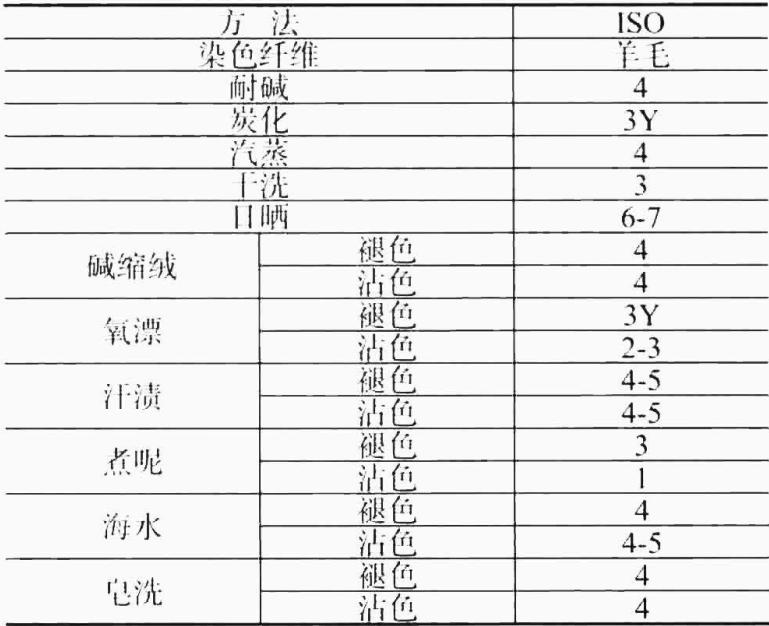 方 法 ISO
染色纤维 羊毛
耐碱 4
炭化 3Y
汽蒸 4
干洗 3
日晒 6-7
碱缩绒 褪色 4
沾色 4
氧漂 褪色 3Y
沾色 2-3
汗渍 褪色 4-5
沾色 4-5
煮呢 褪色 3
沾色 1
海水 褪色 4
沾色 4-5
皂洗 褪色 4
沾色 4